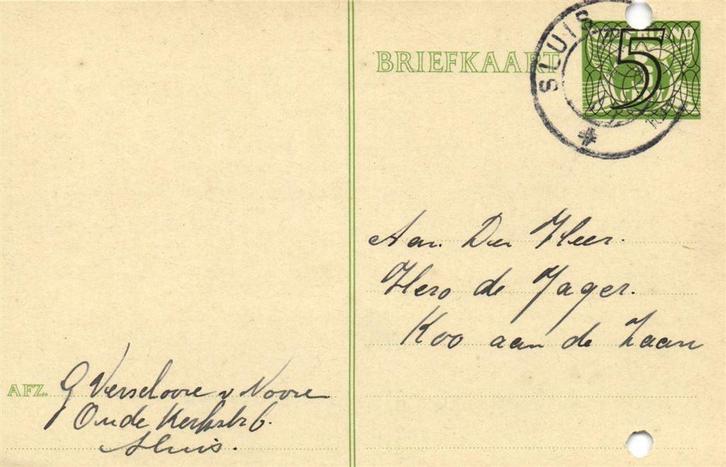 BRIEFKAART
SLUIS
5
Aan Den Heer.
Hero de Jager.
Koo aan de Zaan
AFZ. G Verscloore v Noore
Oude Kerkstr 6.
Sluis.